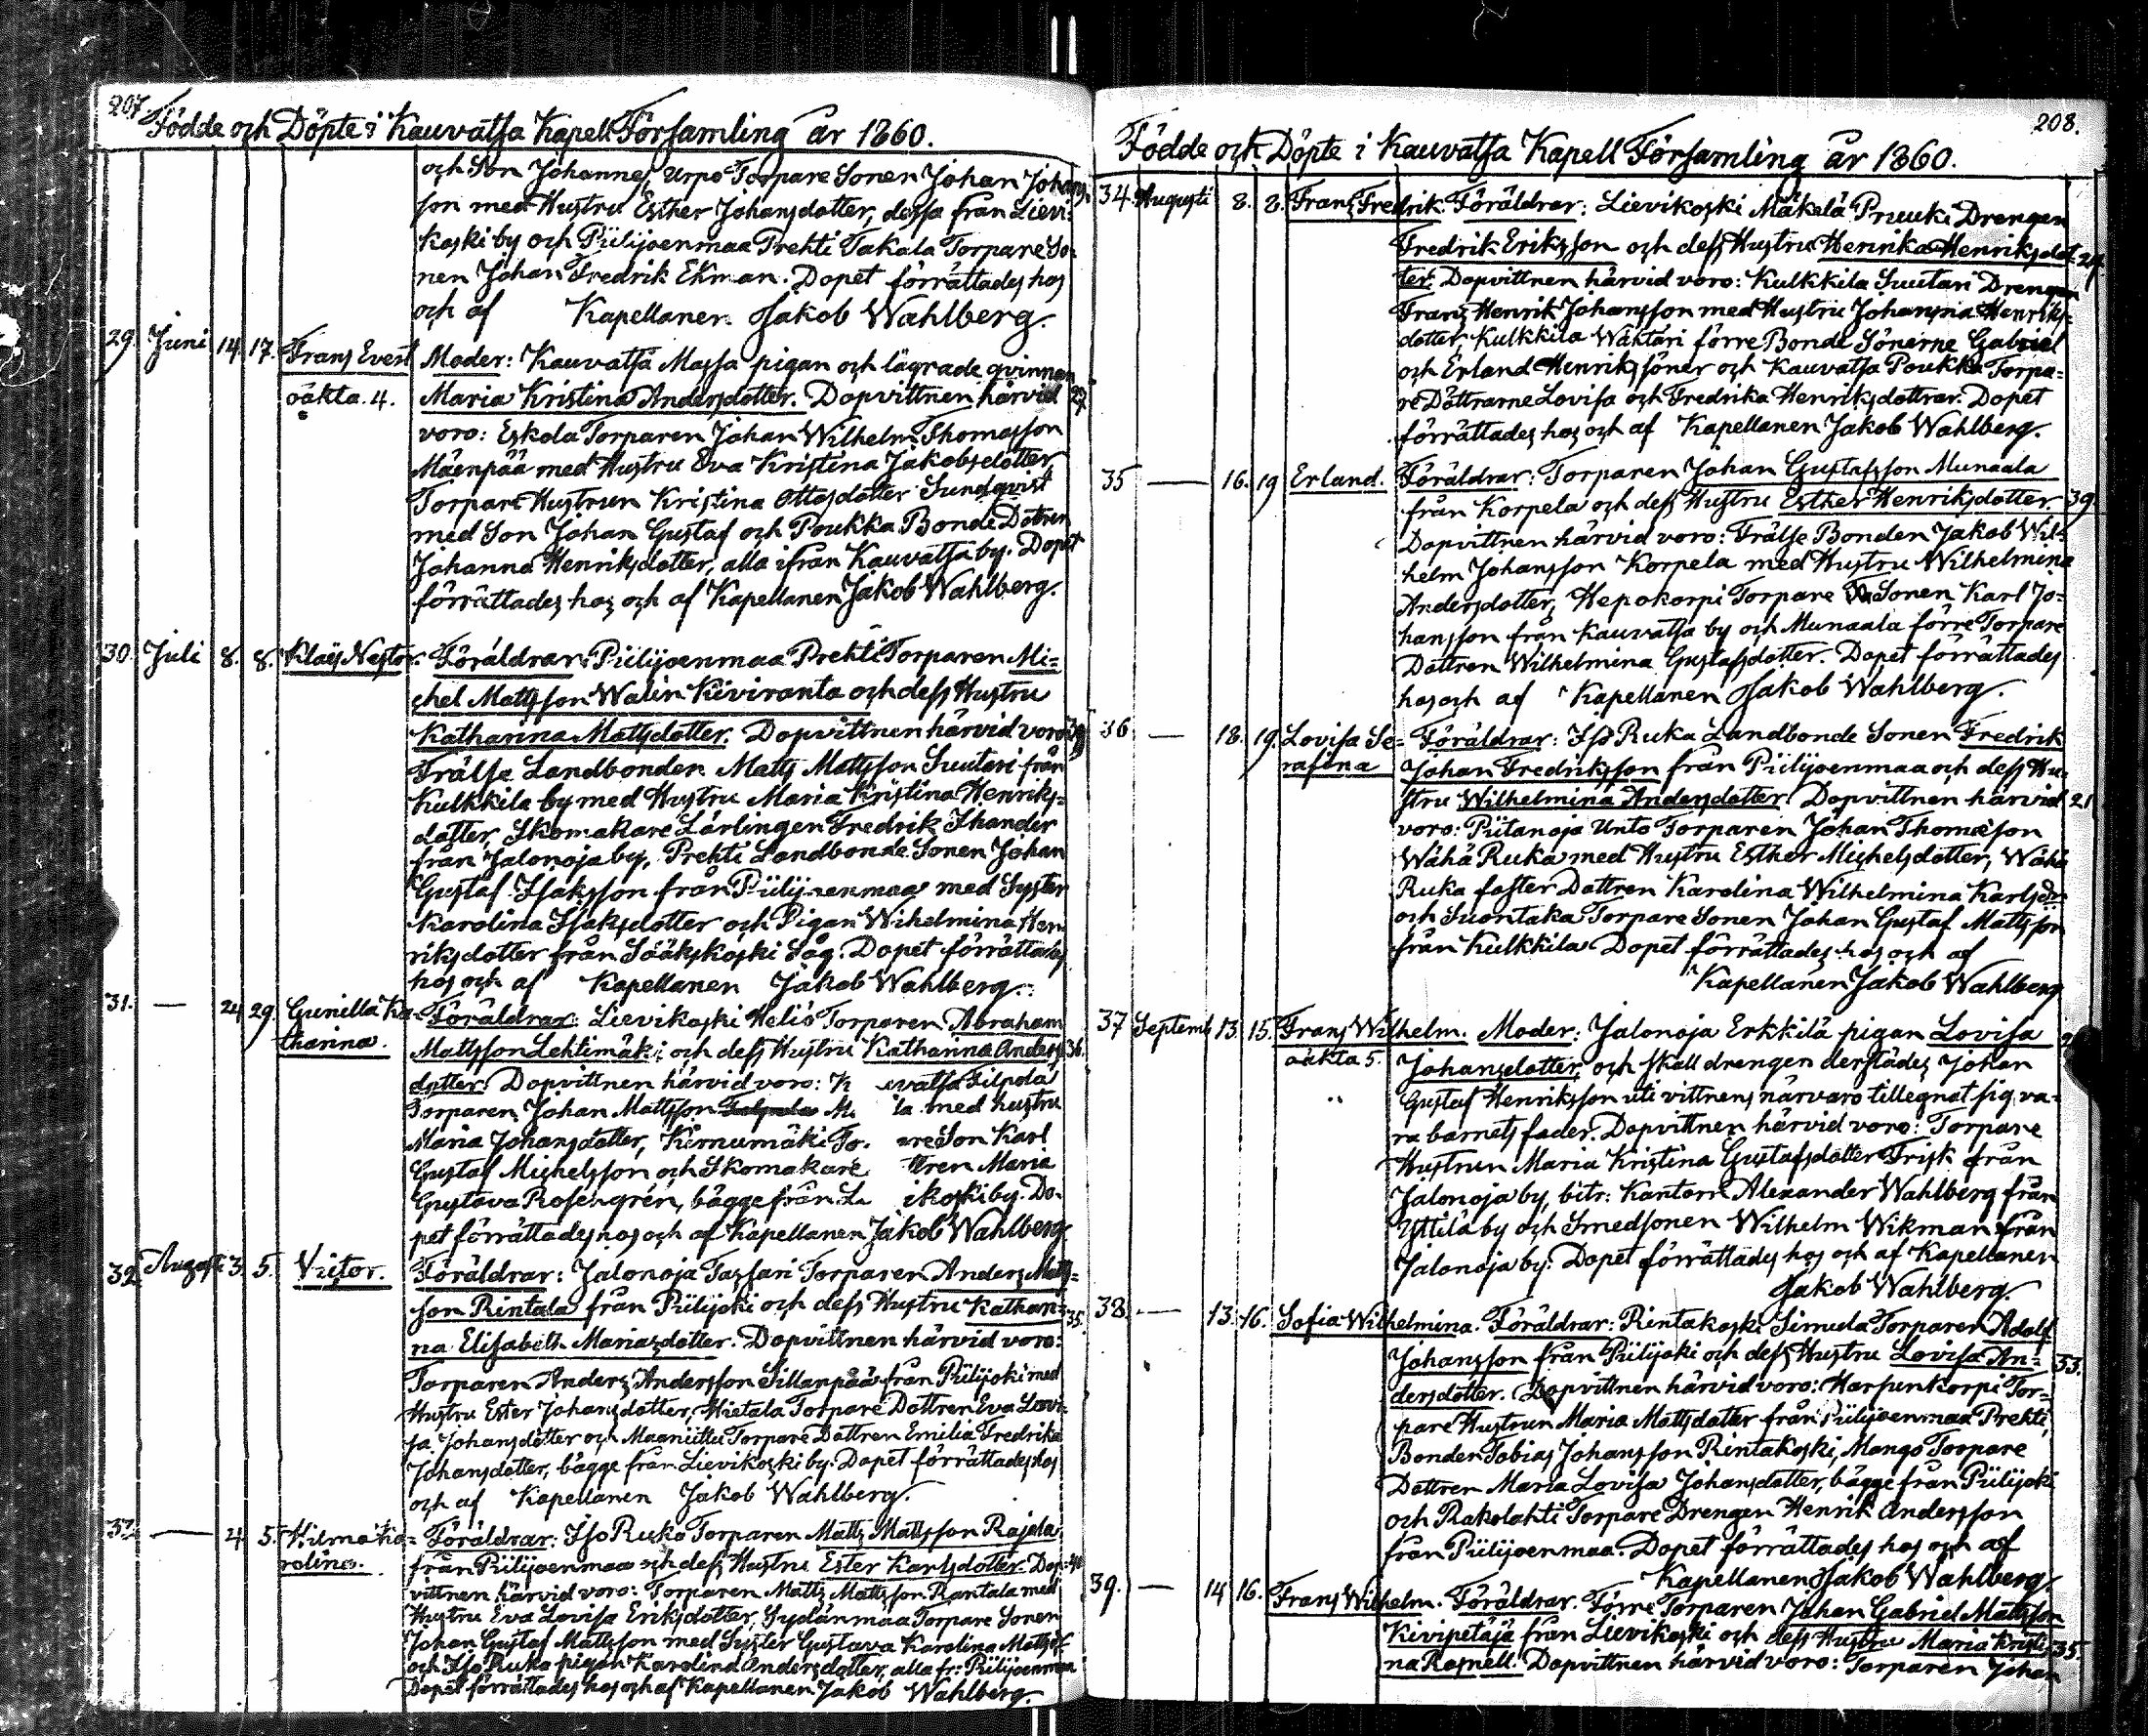 207.
Födde och Döpte i Kauvatsa Kapell Församling år 1860.
och Son Johannes, Urpo Torpare Sonen Johan Johans-
son med Hustru Esther Johansdotter, dessa från Lievi-
koski by och Piilijoenmaa Prehti Takala Torpare So-
nen Johan Fredrik Ekman. Dopet förrättades hos
och af Kapellanen Jakob Wahlberg.
29. Juni 14. 17. Frans Evert Moder: Kauvatsa Massa pigan och lägrade qvinnan
oäkta. 4. Maria Kristina Andersdotter. Dopvittnen härvid 27.
voro: Eskola Torparen Johan Wilhelm Thomasson
Mäenpää med Hustru Eva Kristina Jakobsdotter
Torpare Hustrun Kristina Ottosdotter Sundqvist
med Son Johan Gustaf och Poukka Bonde Dotren
Johanna Henriksdotter, alla ifrån Kauvatsa by. Dopet
förrättades hos och af Kapellanen Jakob Wahlberg.
30. Juli 8. 8. Klaes Nestor. Föräldrar: Piilijoenmaa Prehti Torparen Mi-
chel Mattsson Walin Kiviranta och dess Hustru
Katharina Mattsdotter. Dopvittnen härvid voro
Frälse Landbonden Matts Mattsson Suutari från
Kulkkila by med Hustru Maria Kristina Henriks-
dotter, Skomakare Lärlingen Fredrik Thander
från Jalonoja by, Prehti Landbonde Sonen Johan
Gustaf Isaksson från Piilijoenmaa med Syster
Karolina Isaksdotter och Pigan Wilhelmina Hen-
riksdotter från Sääkskoski Såg. Dopet förrättades
hos och af Kapellanen Jakob Wahlberg.
31. — 24 29. Gunilla Ka- Föräldrar: Lievikoski Heliö Torparen Abraham
tharina. Mattsson Lehtimäki och dess Hustru Katharina Anders- 36.
dotter. Dopvittnen härvid voro: K uvatsa Filpola
Torparen Johan Mattsson M. la med hustru
Maria Johansdotter, Kirnumäki To. areSon Karl
Gustaf Michelsson och Skomakare ttren Maria
Gustava Rosengrén, bägge från L. ikoski by. Do-
pet förrättades hos och af Kapellanen Jakob Wahlberg.
32. Augusti 3. 5. Victor. Föräldrar: Jalonoja Tassari Torparen Anders Matts-
son Rintala från Piilijoki och dess Hustru Kathari-
na Elisabeth Mariasdotter. Dopvittnen härvid voro: 35.
Torparen Anders Andersson Sillanpää från Piilijoki med
Hustru Ester Johansdotter, Hietala Torpare Dottren Eva Lovi-
sa Johansdotter och Maaniittu Torpare Dottren Emilia Fredrika
Johansdotter, bägge från Lievikoski by. Dopet förrättades hos
och af Kapellanen Jakob Wahlberg.
33. — 4 5. Wilma Ka- Föräldrar: Iso Ruka Torparen Matts Mattsson Rajala
rolina. från Piilijoenmaa och dess Hustru Ester Karlsdotter. Dop- 40
vittnen härvid voro: Torparen Matts Mattsson Rantala med
Hustru Eva Lovisa Eriksdotter, Sydänmaa Torpare Sonen
Johan Gustaf Mattsson med Syster Gustava Karolina Mattsdr
och Iso Ruka pigan Karolina Andersdotter, alla fr: Piilijoenmaa
Dopet förrättades hos och af Kapellanen Jakob Wahlberg.
208.
Födde och Döpte i Kauvatsa Kapell Församling år 1860.
34. Augusti 8. 8. Frans Fredrik. Föräldrar: Lievikoski Mäkelä Pruuki Drengen
Fredrik Eriksson och dess Hustru Henrika Henriksdot-
ter. Dopvittnen härvid voro: Kulkkila Suutari Drengen
Frans Henrik Johansson med Hustru Johanna Henriks-
dotter Kulkkila Wähtäri förre Bonde Sönerne Gabriel
och Erland Henrikssöner och Kauvatsa Poukka Torpa-
re Döttrarne Lovisa och Fredrika Henriksdöttrar. Dopet
förrättades hos och af Kapellanen Jakob Wahlberg.
35 — 16. 19 Erland. Föräldrar: Torparen Johan Gustafsson Munaala
från Korpela och dess Hustru Esther Henriksdotter. 39.
Dopvittnen härvid voro: Frälse Bonden Jakob Wil-
helm Johansson Korpela med Hustru Wilhelmina
Andersdotter, Hepokorpi Torpare Sonen Karl Jo-
hansson från Kauvatsa by och Munaala förre Torpare
Dottren Wilhelmina Gustafsdotter. Dopet förrättades
hos och af Kapellanen Jakob Wahlberg.
36 — 18. 19. Lovisa Se- Föräldrar: Iso Ruka Landbonde Sonen Fredrik
rafina Johan Fredriksson från Piilijoenmaa och dess Hu-
stru Wilhelmina Andersdotter. Dopvittnen härvid 21
voro: Piitanoja Unto Torparen Johan Thomasson
Wähä Ruka med Hustru Esther Michelsdotter, Wähä
Ruka foster Dottren Karolina Wilhelmina Karlsdr
och Suontaka Torpare Sonen Johan Gustaf Mattsson
från Kulkkila Dopet förrättades hos och af
Kapellanen Jakob Wahlberg
37 Septemb. 13. 15. Frans Wilhelm. Moder: Jalonoja Erkkilä pigan Lovisa
oäkta 5. Johansdotter, och skall drengen derstädes Johan
Gustaf Henriksson uti vittnens närvaro tillegnat sig va-
ra barnets fader. Dopvittnen härvid voro: Torpare
Hustrun Maria Kristina Gustafsdotter Frisk från
Jalonoja by, bitr: Kantorn Alexander Wahlberg från
Yttilä by och Smedsonen Wilhelm Wikman från
Jalonoja by. Dopet förrättades hos och af Kapellanen
Jakob Wahlberg.
38. — 13. 16. Sofia Wilhelmina. Föräldrar: Rintakoski Simula Torparen Adolf
Johansson från Piilijoki och dess Hustru Lovisa An- 33.
dersdotter. Dopvittnen härvid voro: Harjunkorpi Tor-
pare Hustrun Maria Mattsdotter från Piilijoenmaa Prehti,
Bonden Tobias Johansson Rintakoski, Mango Torpare
Dottren Maria Lovisa Johansdotter, bägge från Piilijoki
och Rakolahti Torpare Drengen Henrik Andersson
från Piilijoenmaa. Dopet förrättades hos och af
Kapellanen Jakob Wahlberg.
39. — 14 16. Frans Wilhelm. Föräldrar. Förre Torparen Johan Gabriel Mattsson
Kivipetäjä från Lievikoski och dess Hustru Maria Kristi- 35.
na Rosnell. Dopvittnen härvid voro: Torparen Johan